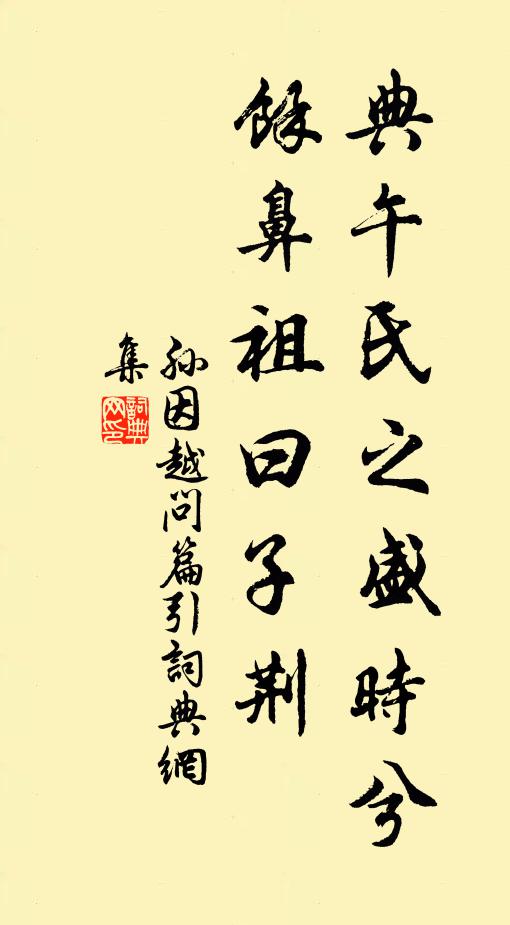 典午氏之盛時兮
餘鼻祖曰子荆
孙因越問篇引詞典網
集
詞典
网印